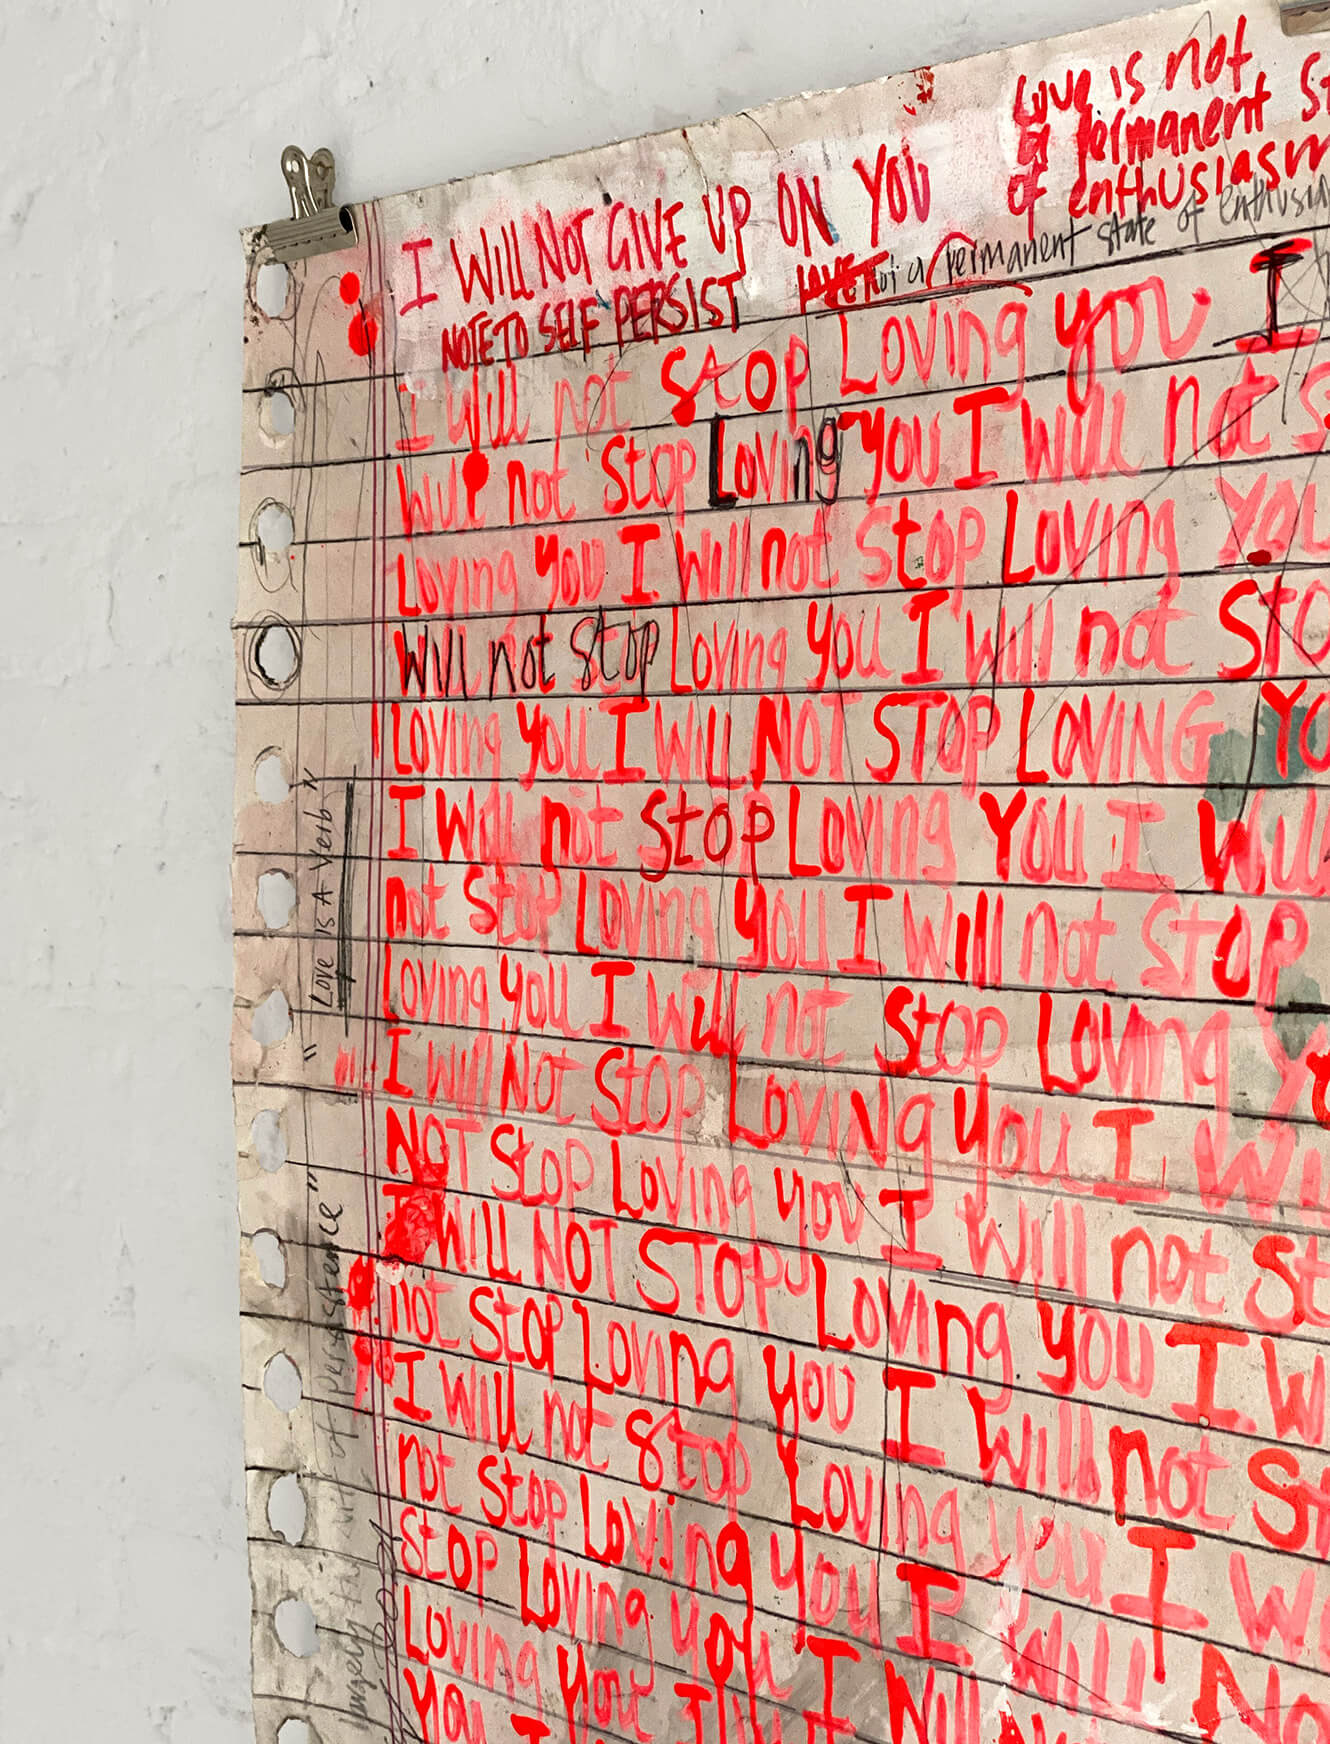 Love is not
a permanent
of enthusiasm
I WILL NOT GIVE UP ON YOU
NOTE TO SELF PERSIST
LOVE not a permanent state of enthusia
I will not Stop Loving you I
will not Stop Loving you I will not s
Loving you I will not Stop Loving you
Will not stop Loving you I will not Sto
Loving you I Will NOT STOP LOVING YO
I Will not Stop Loving You I Will
not Stop Loving you I Will not Stop
Loving you I will not Stop Loving yo
I will Not Stop Loving you I Wil
NOT Stop Loving you I Will not St
I WILL NOT STOP Loving you I W
not Stop Loving you I Will not St
I Will not Stop Loving you I W
not Stop Loving you I Will No
Stop Loving you I Will
Loving you I Will
You I
"Love Is A Verb"
of persistence"